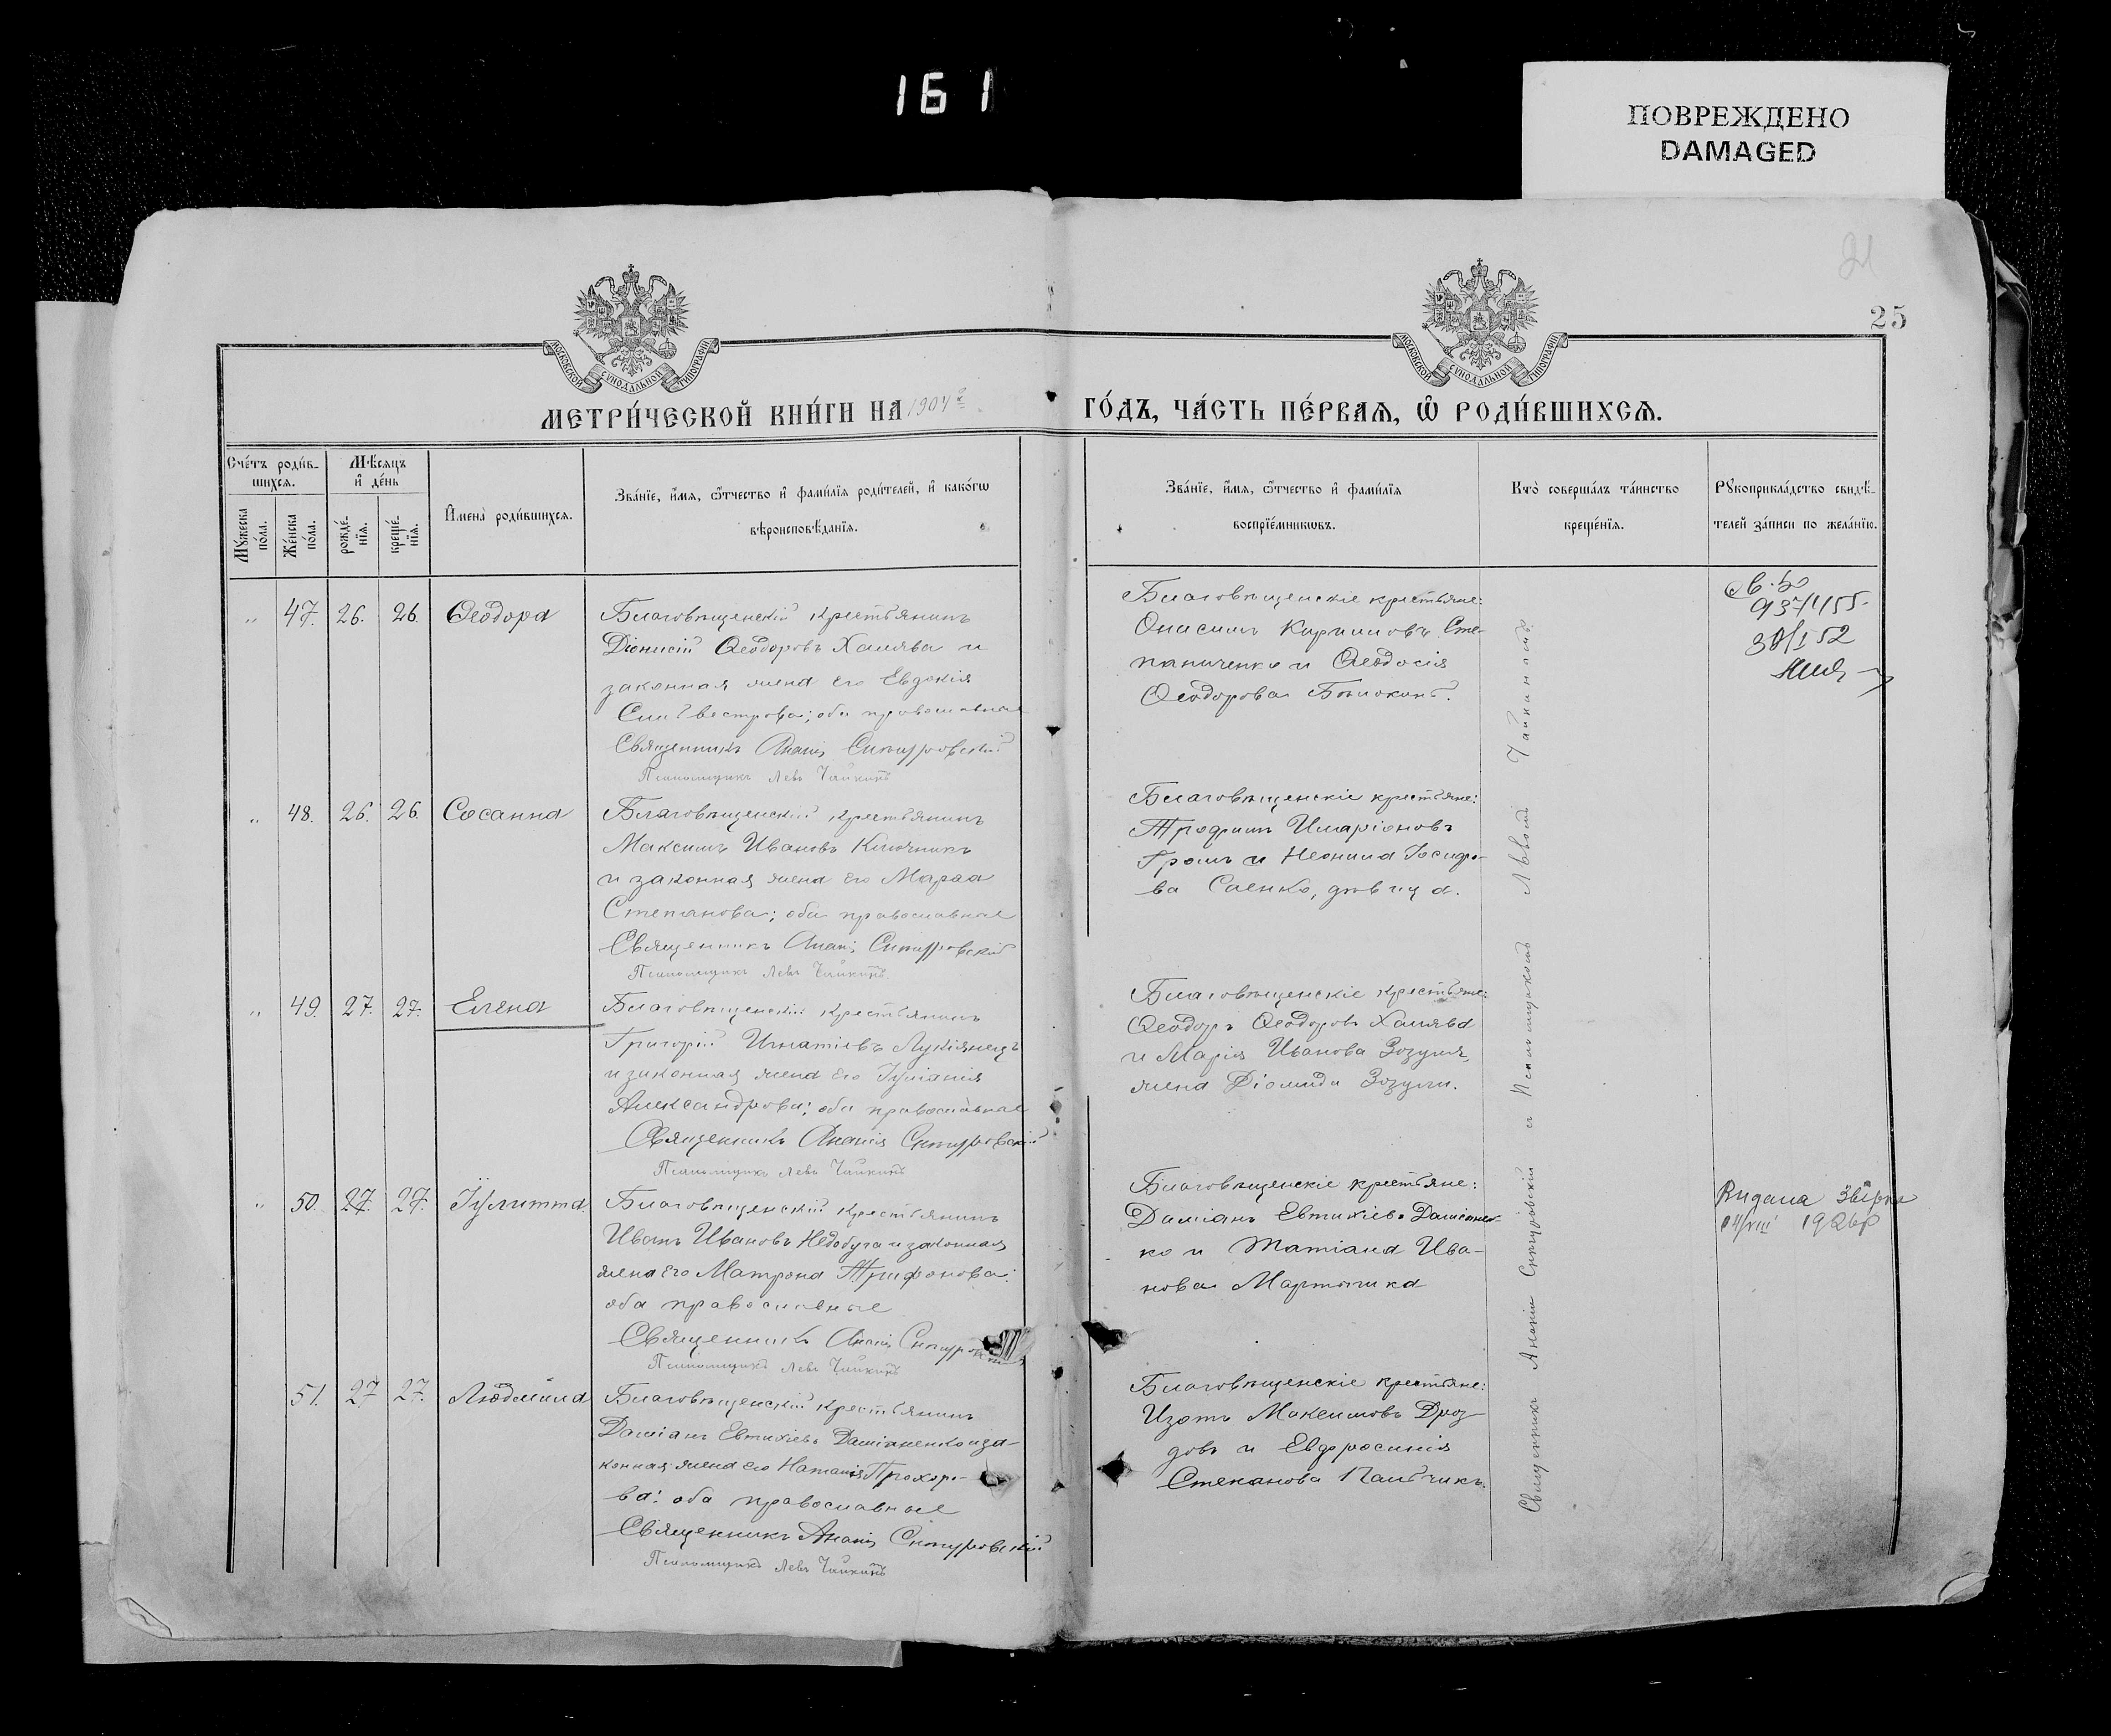 161
ПОВРЕЖДЕНО
DAMAGED
21
25
МОСКОВСКОЙ СѴНОДАЛЬНОЙ ТИПОГРАФІИ
МОСКОВСКОЙ СѴНОДАЛЬНОЙ ТИПОГРАФІИ
МЕТРИ́ЧЕСКОЙ КНИ́ГИ НА 1904 г.
ГО́ДЪ, ЧА́СТЬ ПЕ́РВАѦ, Ѿ РОДИ́ВШИХСѦ.
Сче́тъ роди́в-
шихсѧ.
Мѣ́сѧцъ
и҆ де́нь
Му́жеска
по́ла.
Же́нска
по́ла.
рожде́-
нїѧ.
креще́-
нїѧ.
И҆мена̀ роди́вшихсѧ.
Зва́нїе, и҆́мѧ, ѻ҆́тчество и҆ фами́лїѧ роди́телей, и҆ како́гѡ
вѣроисповѣ́данїѧ.
Зва́нїе, и҆́мѧ, ѻ҆́тчество и҆ фами́лїѧ
воспрїе́мникѡвъ.
Кто̀ соверша́лъ та́инство
креще́нїѧ.
Рꙋкоприкла́дство свидѣ́-
телей за́писи по жела́нїю.
" 47. 26. 26. Ѳеодора
Благовѣщенскій крестьянинъ
Діонисій Ѳеодоровъ Халява и
законная жена его Евдокія
Сильвестрова; оба православные
Священникъ Ананія Снтуровскій
Псаломщикъ Левъ Чайкинъ
Благовѣщенскіе крестьяне:
Онисимъ Кирилловъ Сте-
паниченко и Ѳеодосія
Ѳеодорова
30/I 52
" 48. 26. 26. Сосанна
Благовѣщенскій крестьянинъ
Максимъ Ивановъ Ключникъ
и законная жена его Марѳа
Степанова; оба православные
Священникъ Ананія Снтуровскій
Псаломщикъ Левъ Чайкинъ
Благовѣщенскіе крестьяне:
Трофимъ Иларіоновъ
Громъ и Неонила Іосифо-
ва Саенко, дѣвица.
" 49. 27. 27. Елена
Благовѣщенскій крестьянинъ
Григорій Игнатіевъ Лукіянецъ
и законная жена его Іуліанія
Александрова; оба православные
Священникъ Ананія Снтуровскій
Псаломщикъ Левъ Чайкинъ
Благовѣщенскіе крестьяне:
Ѳеодоръ Ѳеодоровъ Халява
и Марія Иванова Зозуля,
жена Діомида Зозули.
" 50. 27. 27. Іулитта
Благовѣщенскій крестьянинъ
Иванъ Ивановъ Недобуга и законная
жена его Матрона Трифонова;
оба православные
Священникъ Ананія
Псаломщикъ Левъ Чайкинъ
Благовѣщенскіе крестьяне:
Даміанъ Евтихіевъ Даміанен-
ко и Татіана Ива-
нова
Видана
51. 27 27. Людмила
Благовѣщенскій крестьянинъ
Даміанъ Евтихіевъ Даміаненко и за-
конная жена его Наталія Прохоро-
ва; оба православные
Священникъ Ананія Снтуровскій
Псаломщикъ Левъ Чайкинъ
Благовѣщенскіе крестьяне:
Изотъ Максимовъ Дроз-
довъ и Евфросинія
Степанова Пальчикъ.
Священникъ Ананія Снтуровскій и Псаломщикъ Левъ Чайкинъ